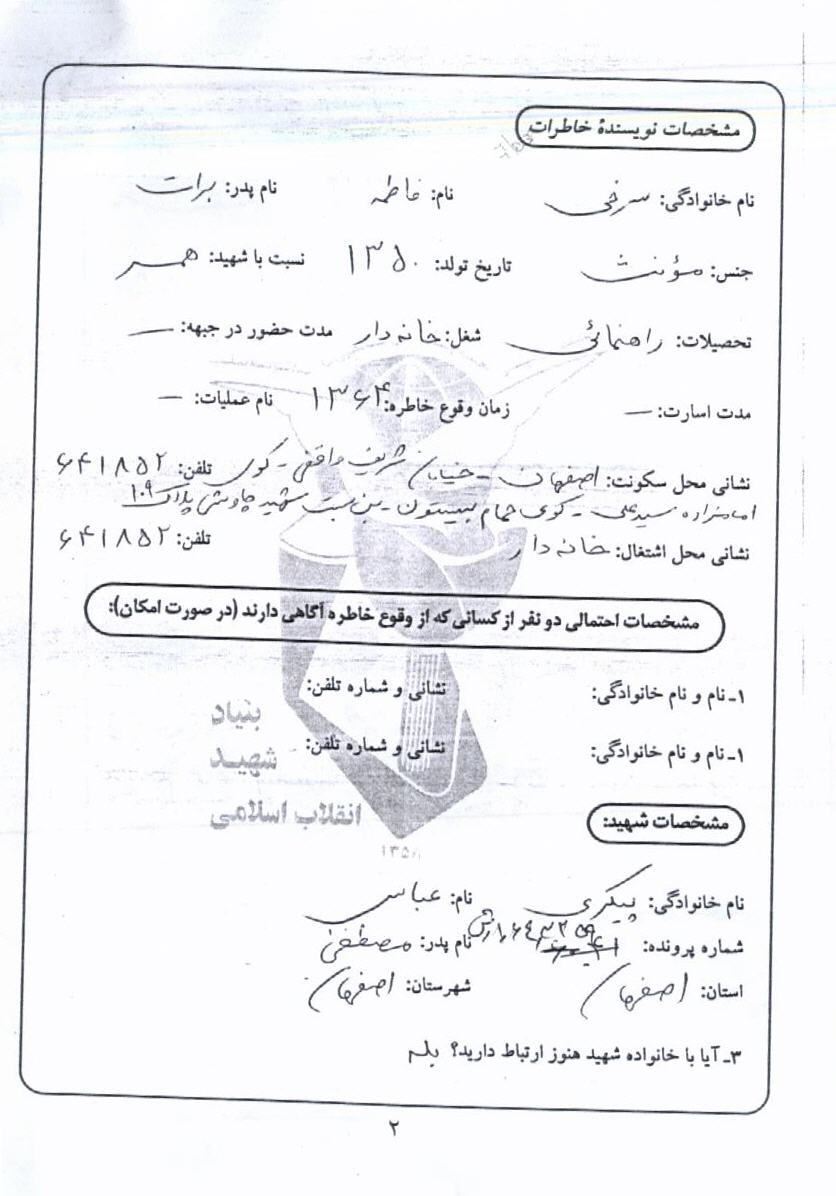 مشخصات نویسندۀ خاطرات
نام خانوادگی: سرخی نام: فاطمه نام پدر: برات
جنس: مؤنث تاریخ تولد: ۱۳۵۰ نسبت با شهید: همسر
تحصیلات: راهنمائی شغل: خانه دار مدت حضور در جبهه: —
مدت اسارت: — زمان وقوع خاطره: ۱۳۶۴ نام عملیات: —
نشانی محل سکونت: اصفهان - خیابان شریف واقفی - کوی تلفن: ۶۴۱۸۵۲
امامزاده سیدعلی - کوی حمام - بن بست شهید چاوشی پلاک ۱۰۹
نشانی محل اشتغال: خانه دار تلفن: ۶۴۱۸۵۲
مشخصات احتمالی دو نفر از کسانی که از وقوع خاطره آگاهی دارند (در صورت امکان):
۱ـ نام و نام خانوادگی: نشانی و شماره تلفن:
۱ـ نام و نام خانوادگی: نشانی و شماره تلفن:
بنیاد
شهید
انقلاب اسلامی
مشخصات شهید:
نام خانوادگی: پیکری نام: عباس
شماره پرونده: نام پدر: مصطفی
استان: اصفهان شهرستان: اصفهان
۳ـ آیا با خانواده شهید هنوز ارتباط دارید؟ بله
۲